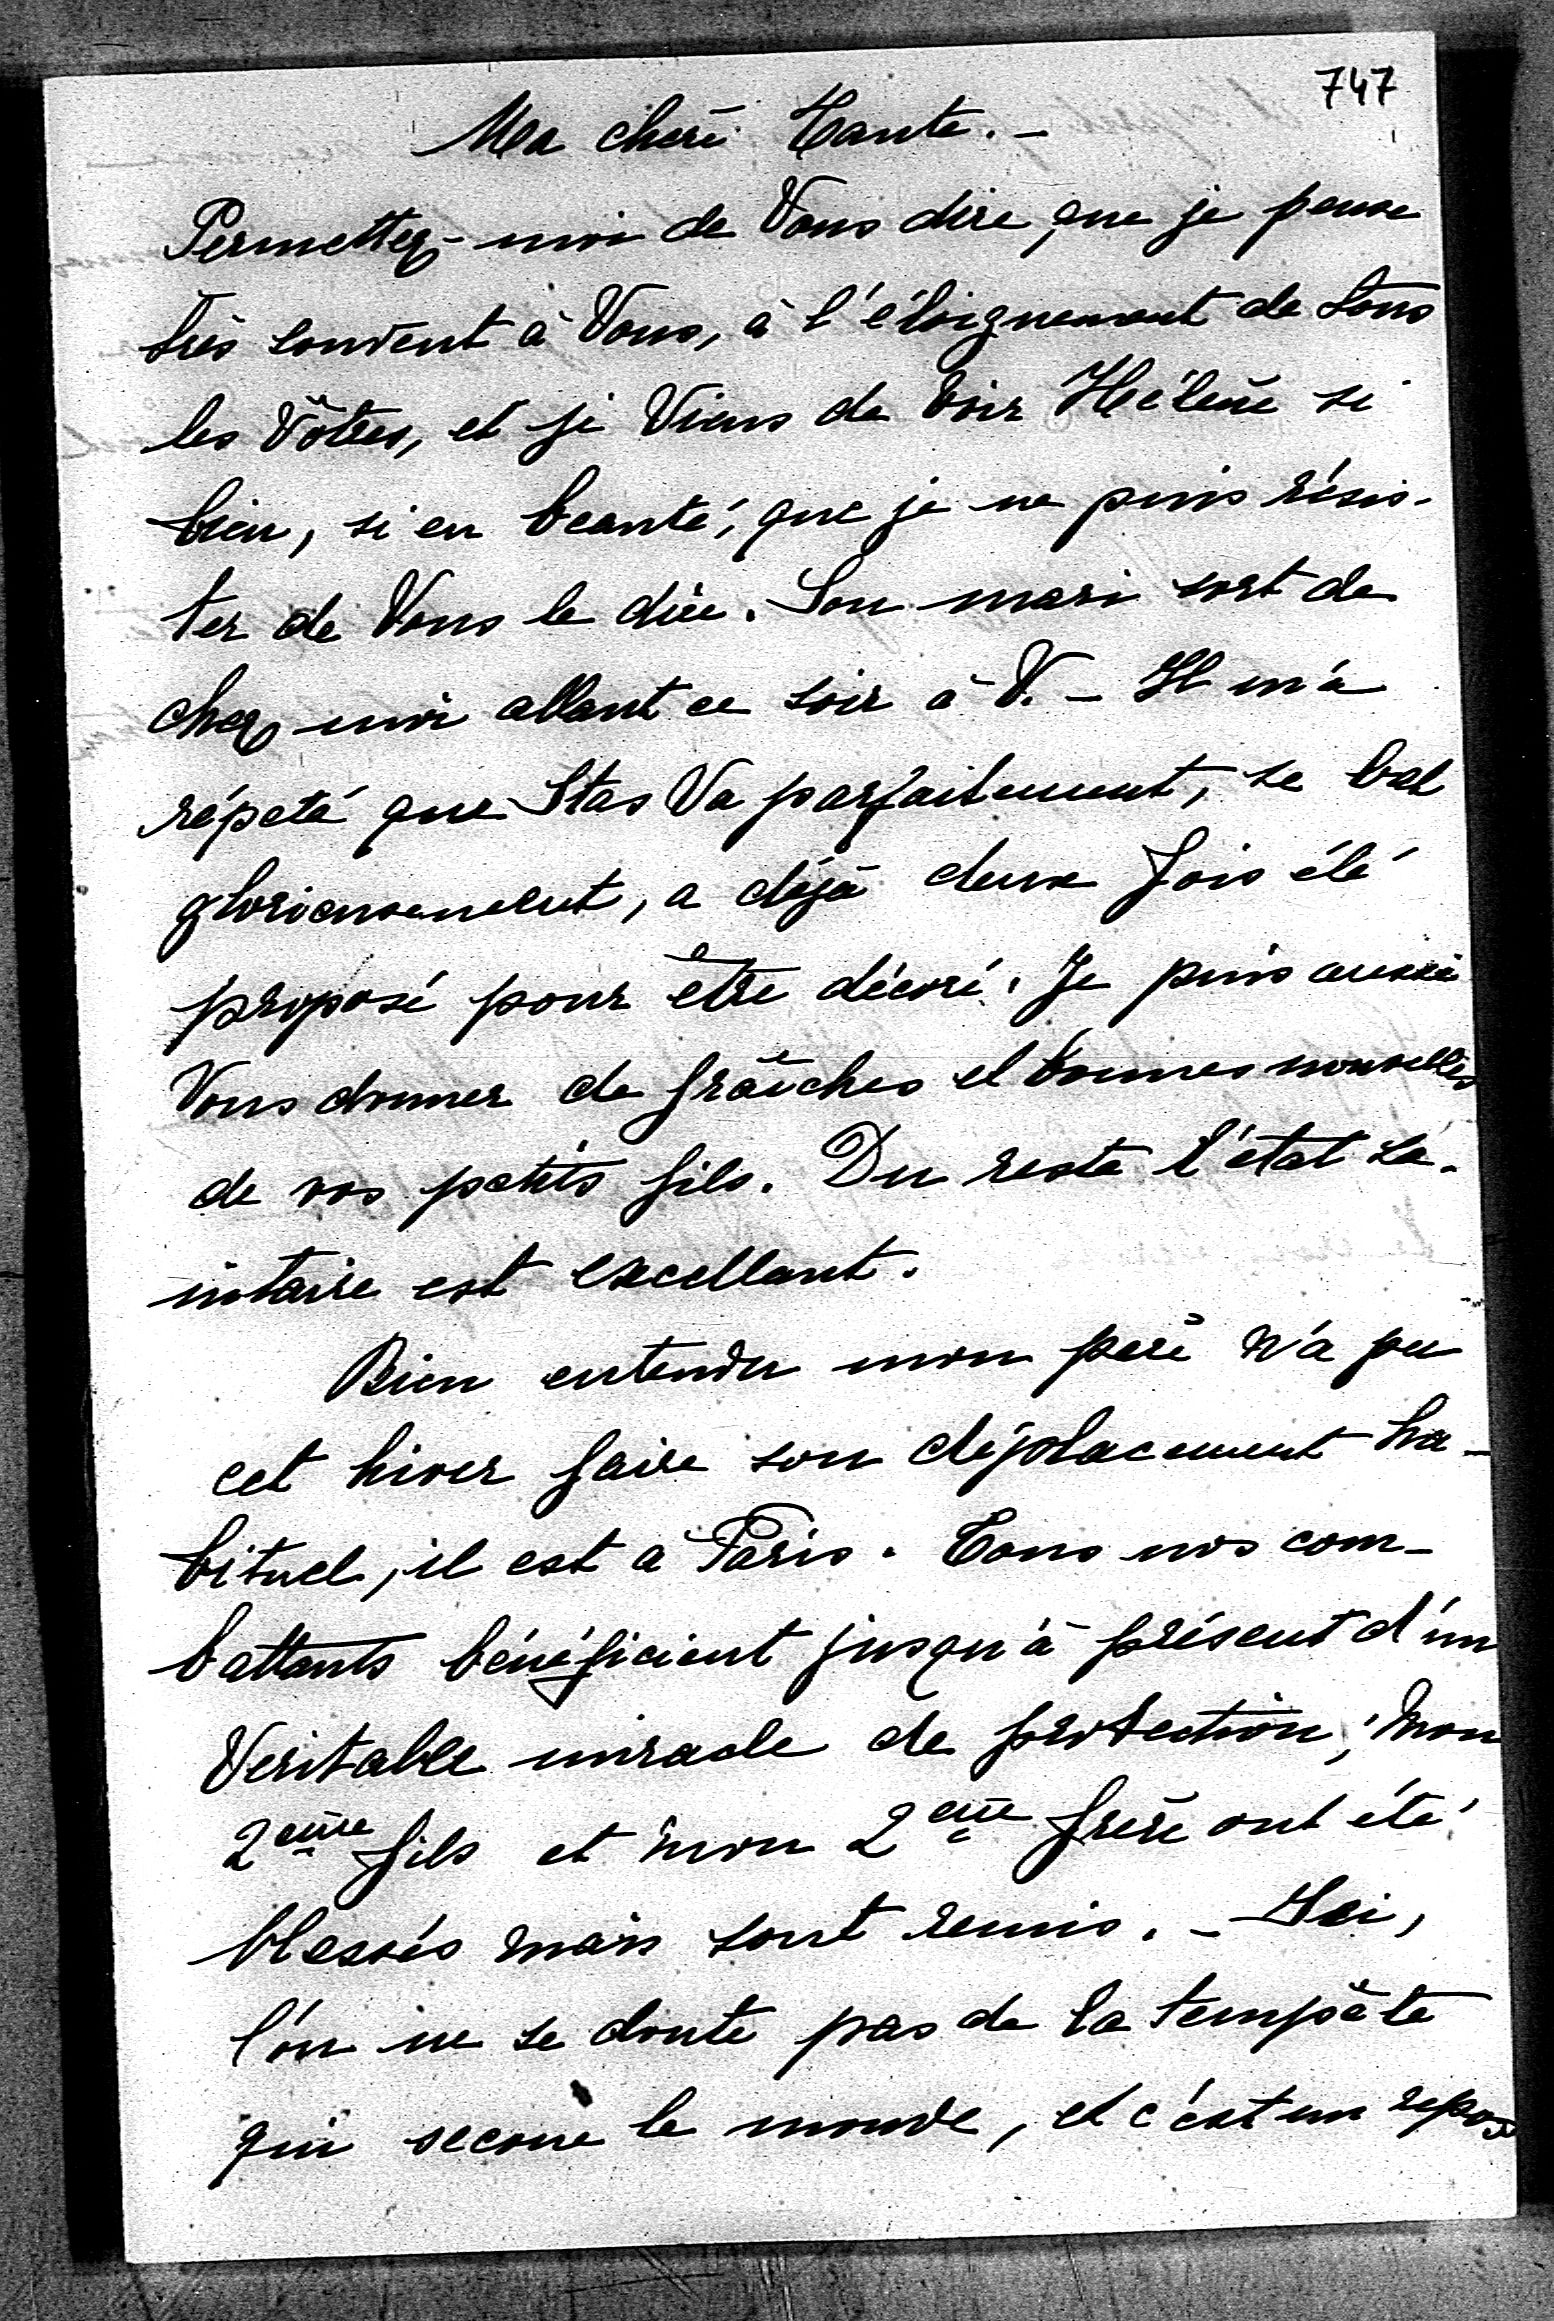 747
Ma chère Tante. -
Permettez-moi de Vous dire que je pense
très souvent à Vous, à l'éloignement de tous
les Vôtres, et je Viens de Voir Hélène si
bien, si en beauté, que je ne puis résis-
ter de Vous le dire. Son mari sort de
chez moi allant ce soir à V. - Il m'a
répété que Stas Va parfaitement, se bat
glorieusement, a déjà deux fois été
proposé pour être décoré. Je puis aussi
Vous donner de fraîches et bonnes nouvelles
de vos petits fils. Du reste l'état sa-
nitaire est excellent.
Bien entendu mon père n'a pu
cet hiver faire son déplacement ha-
bituel, il est à Paris. Tous nos com-
battants bénéficient jusqu'à présent d'un
Veritable miracle de protection; mon
2ème fils et mon 2ème frère ont été
blessés mais sont remis. - Ici,
l'on ne se doute pas de la tempête
qui secoue le monde, et c'est un repos